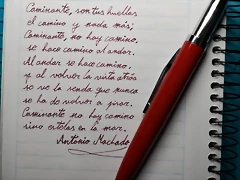 Caminante, son tus huellas
el camino y nada más;
Caminante, no hay camino,
se hace camino al andar.
Al andar se hace camino,
y al volver la vista atrás
se ve la senda que nunca
se ha de volver a pisar.
Caminante no hay camino
sino estelas en la mar.
Antonio Machado